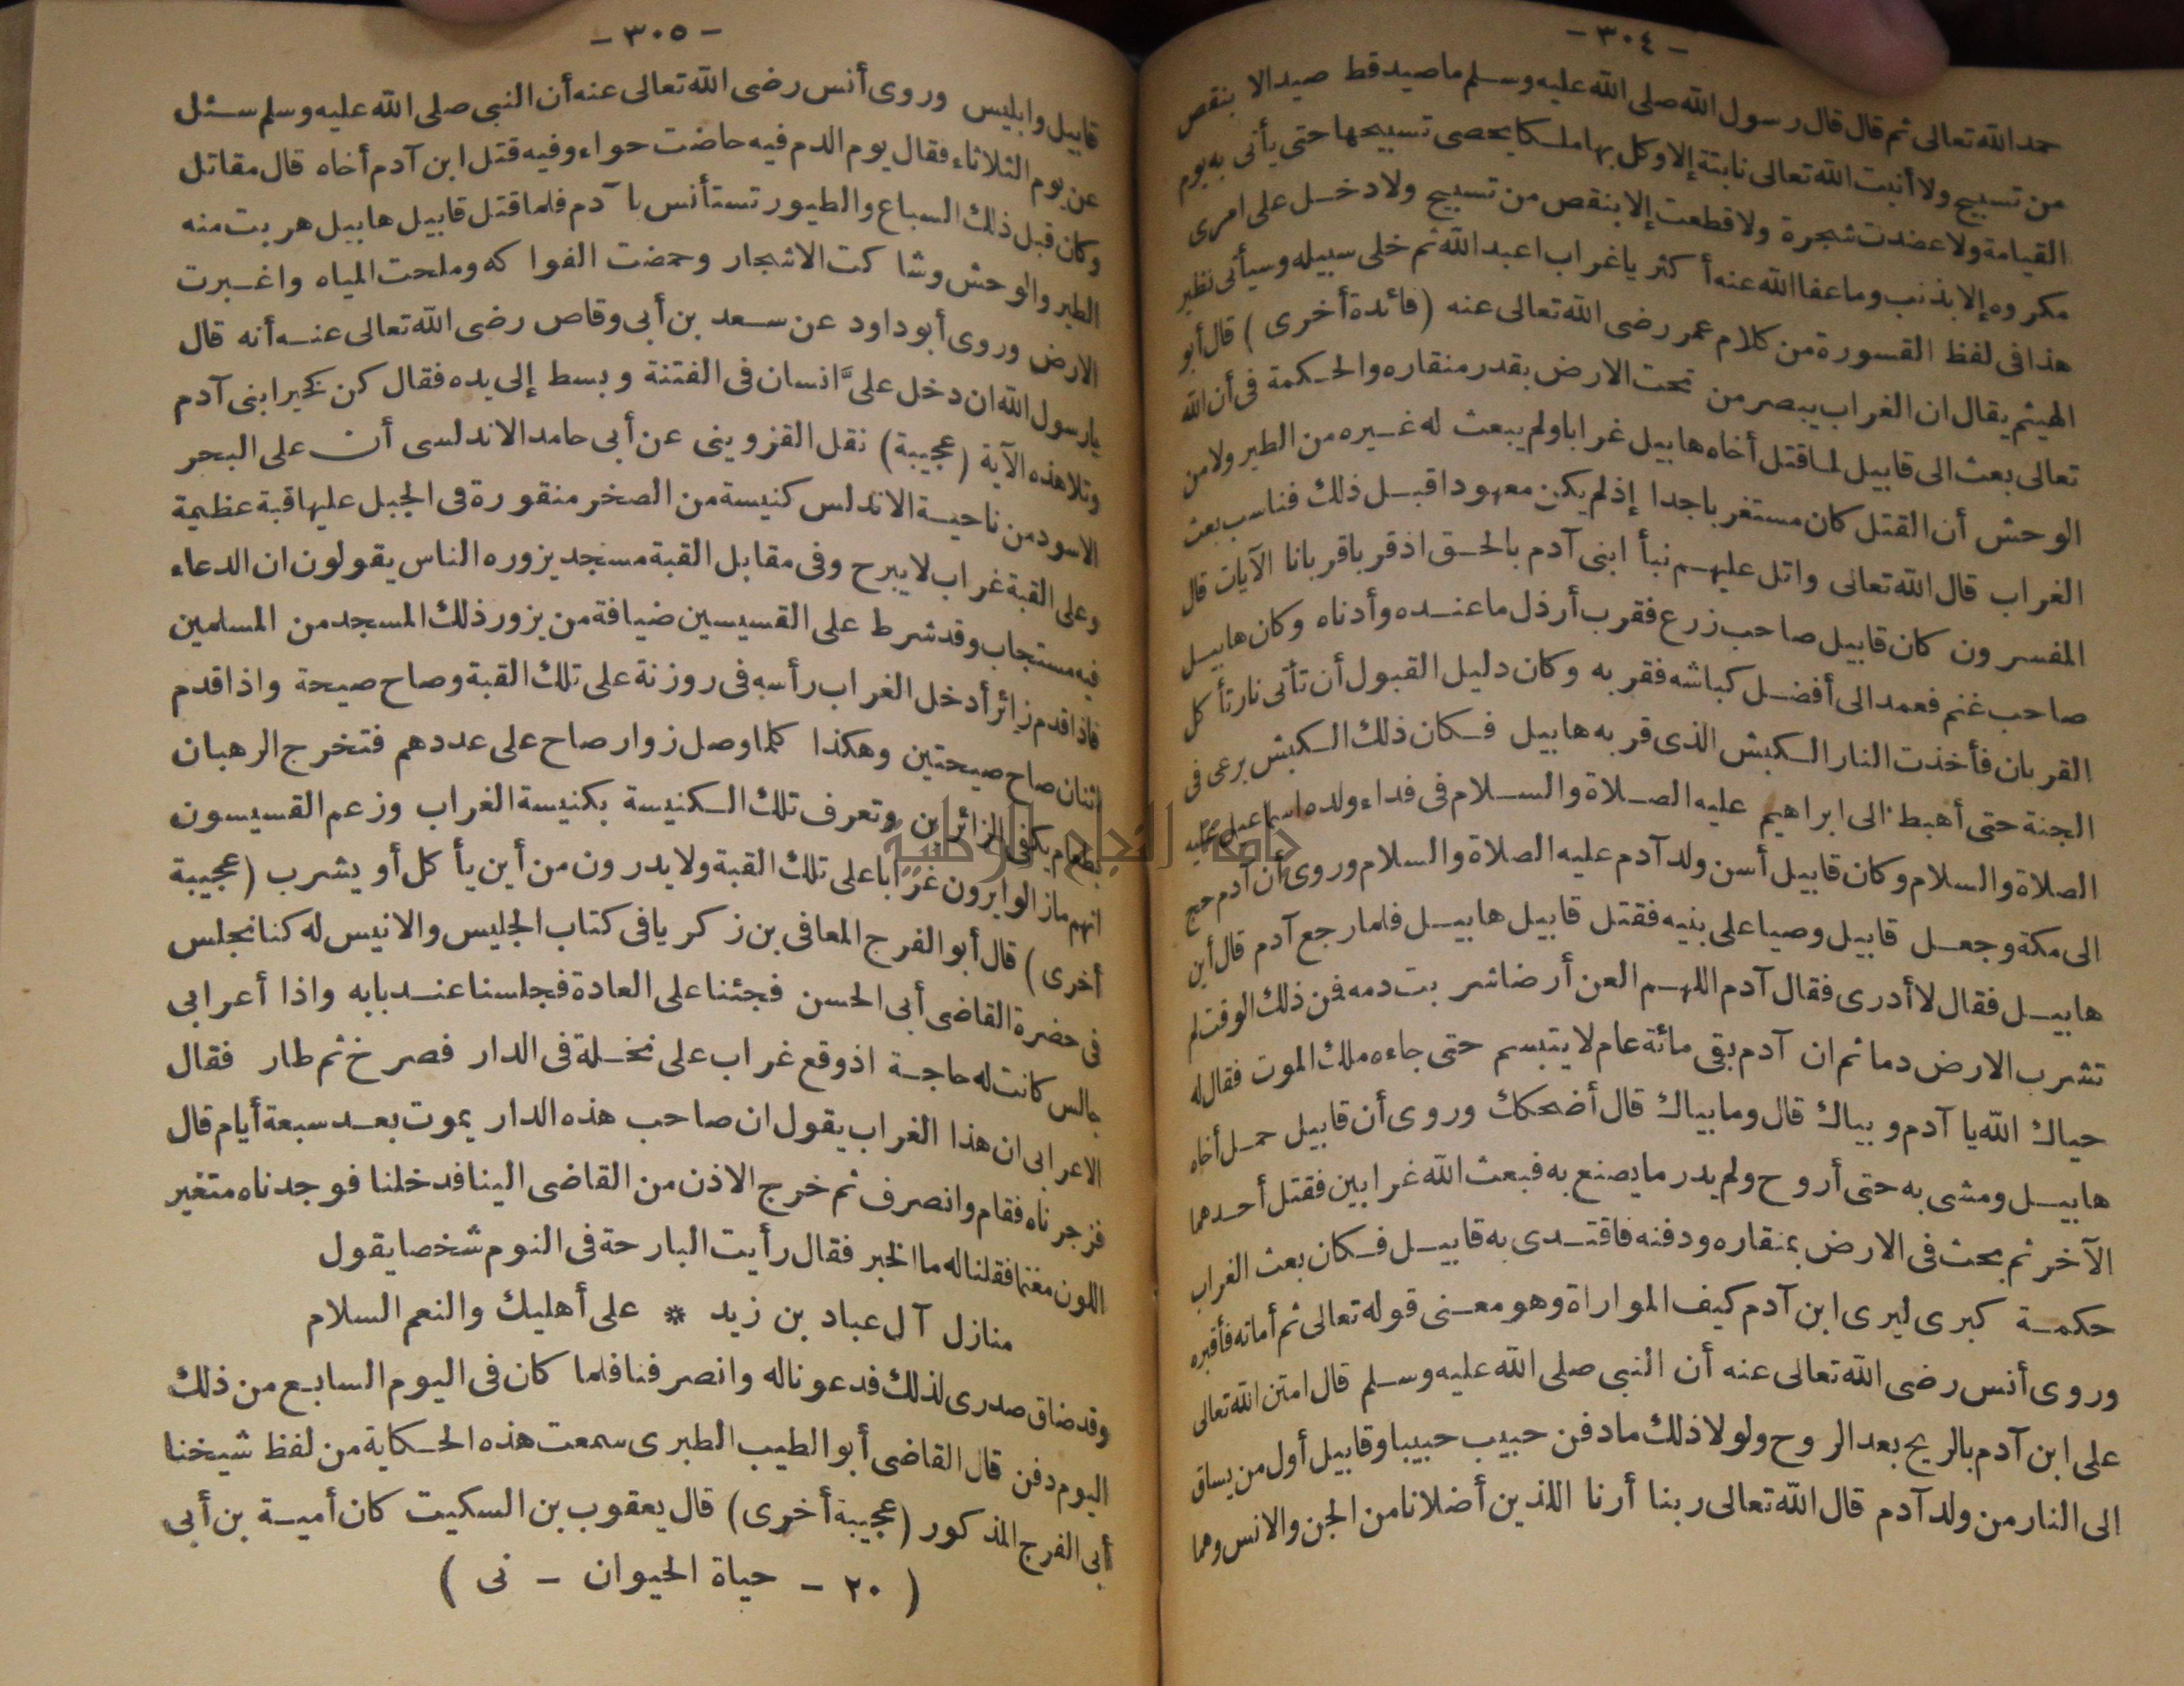 - ٣٠٤ -
حمد الله تعالى ثم قال قال رسول الله صلى الله عليه وسلم ما صيد قط صيد الا بنقص
من تسبيح ولا أنبت الله تعالى نابتة إلا وكل بها ملكا يحصى تسبيحها حتى يأتى به يوم
القيامة ولا عضدت شجرة ولا قطعت إلا بنقص من تسبيح ولا دخل على امرئ
مكروه إلا بذنب وما عفا الله عنه أكثر يا غراب اعبد الله ثم خلى سبيله وسيأتى نظير
هذا فى لفظ القسورة من كلام عمر رضى الله تعالى عنه (فائدة أخرى) قال أبو
الهيثم يقال ان الغراب يبصر من تحت الارض بقدر منقاره والحكمة فى أن الله
تعالى بعث الى قابيل لما قتل أخاه هابيل غرابا ولم يبعث له غيره من الطير ولا من
الوحش أن القتل كان مستغربا جدا إذ لم يكن معهودا قبل ذلك فناسب بعث
الغراب قال الله تعالى واتل عليهم نبأ ابنى آدم بالحق اذ قربا قربانا الآيات قال
المفسرون كان قابيل صاحب زرع فقرب أرذل ما عنده وأدناه وكان هابيل
صاحب غنم فعمد الى أفضل كباشه فقربه وكان دليل القبول أن تأتى نار تأكل
القربان فأخذت النار الكبش الذى قربه هابيل فكان ذلك الكبش يرعى فى
الجنة حتى أهبط الى ابراهيم عليه الصلاة والسلام فى فداء ولده اسماعيل عليه
الصلاة والسلام وكان قابيل أسن ولد آدم عليه الصلاة والسلام وروى أن آدم حج
الى مكة وجعل قابيل وصيا على بنيه فقتل قابيل هابيل فلما رجع آدم قال أين
هابيل فقال لا أدرى فقال آدم اللهم العن أرضا شربت دمه فمن ذلك الوقت لم
تشرب الارض دما ثم ان آدم بقى مائة عام لا يتبسم حتى جاءه ملك الموت فقال له
حياك الله يا آدم وبياك قال وما بياك قال أضحكك وروى أن قابيل حمل أخاه
هابيل ومشى به حتى أروح ولم يدر ما يصنع به فبعث الله غرابين فقتل أحدهما
الآخر ثم بحث فى الارض بمنقاره ودفنه فاقتدى به قابيل فكان بعث الغراب
حكمة كبرى ليرى ابن آدم كيف المواراة وهو معنى قوله تعالى ثم أماته فأقبره
وروى أنس رضى الله تعالى عنه أن النبى صلى الله عليه وسلم قال امتن الله تعالى
على ابن آدم بالريح بعد الروح ولولا ذلك ما دفن حبيب حبيبا وقابيل أول من يساق
الى النار من ولد آدم قال الله تعالى ربنا أرنا اللذين أضلانا من الجن والانس وهما
- ٣٠٥ -
قابيل وابليس وروى أنس رضى الله تعالى عنه أن النبى صلى الله عليه وسلم سئل
عن يوم الثلاثاء فقال يوم الدم فيه حاضت حواء وفيه قتل ابن آدم أخاه قال مقاتل
وكان قبل ذلك السباع والطيور تستأنس بآدم فلما قتل قابيل هابيل هربت منه
الطير والوحش وشاكت الاشجار وحمضت الفواكه وملحت المياه واغبرت
الارض وروى أبو داود عن سعد بن أبى وقاص رضى الله تعالى عنه أنه قال
يا رسول الله ان دخل علىَّ انسان فى الفتنة وبسط إلى يده فقال كن كخير ابنى آدم
وتلا هذه الآية (عجيبة) نقل القزوينى عن أبى حامد الاندلسى أن على البحر
الاسود من ناحية الاندلس كنيسة من الصخر منقورة فى الجبل عليها قبة عظيمة
وعلى القبة غراب لا يبرح وفى مقابل القبة مسجد يزوره الناس يقولون ان الدعاء
فيه مستجاب وقد شرط على القسيسين ضيافة من يزور ذلك المسجد من المسلمين
فاذا قدم زائر أدخل الغراب رأسه فى روزنة على تلك القبة وصاح صيحة واذا قدم
اثنان صاح صيحتين وهكذا كلما وصل زوار صاح على عددهم فتخرج الرهبان
بطعام يكفى الزائرين وتعرف تلك الكنيسة بكنيسة الغراب وزعم القسيسون
انهم ما زالوا يرون غرابا على تلك القبة ولا يدرون من أين يأكل أو يشرب (عجيبة
أخرى) قال أبو الفرج المعافى بن زكريا فى كتاب الجليس والانيس له كنا نجلس
فى حضرة القاضى أبى الحسن فجئنا على العادة فجلسنا عند بابه واذا أعرابى
جالس كانت له حاجة اذ وقع غراب على نخلة فى الدار فصرخ ثم طار فقال
الاعرابى ان هذا الغراب يقول ان صاحب هذه الدار يموت بعد سبعة أيام قال
فزجرناه فقام وانصرف ثم خرج الاذن من القاضى الينا فدخلنا فوجدناه متغير
اللون مغتما فقلنا له ما الخبر فقال رأيت البارحة فى النوم شخصا يقول
منازل آل عباد بن زيد * على أهليك والنعم السلام
وقد ضاق صدرى لذلك فدعونا له وانصرفنا فلما كان فى اليوم السابع من ذلك
اليوم دفن قال القاضى أبو الطيب الطبرى سمعت هذه الحكاية من لفظ شيخنا
أبى الفرج المذكور (عجيبة أخرى) قال يعقوب بن السكيت كان أمية بن أبى
( ٢٠ - حياة الحيوان - نى )
جامعة النجاح الوطنية